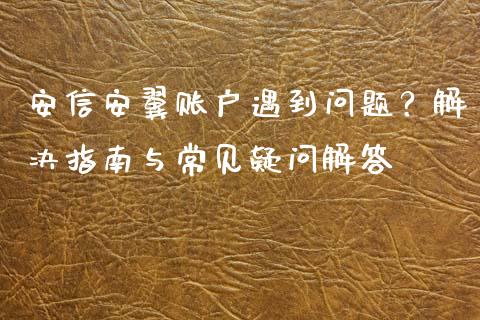 安信安翼账户遇到问题？解
决指南与常见疑问解答